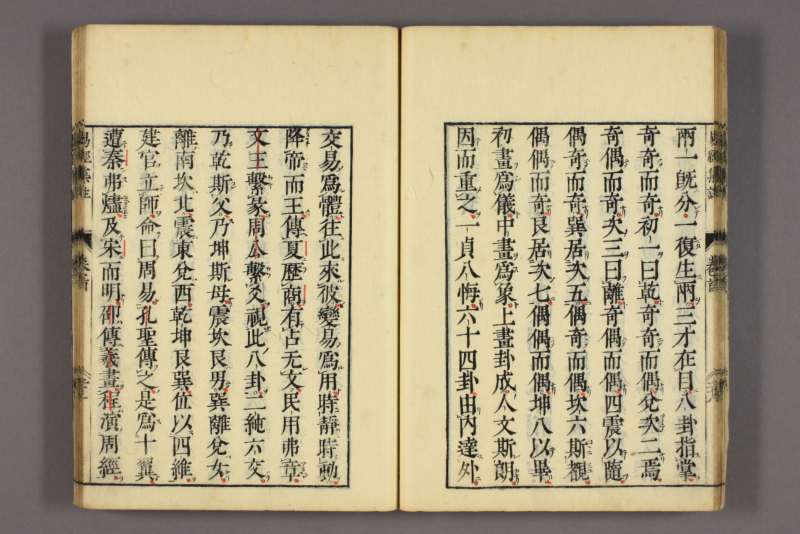 兩一既分一復生兩三才在目八卦指掌
奇奇而奇初一曰乾奇奇而偶兌次二焉
奇偶而奇次三曰離奇偶而偶四震以隨
偶奇而奇巽居次五偶奇而偶坎六斯覩
偶偶而奇艮居次七偶偶而偶坤八以畢
初畫爲儀中畫爲象上畫卦成人文斯朗
因而重之一貞八悔六十四卦由內達外
交易爲體往此來彼變易爲用時靜時動
降帝而王傳夏歷商有占无文民用弗章
文王繫彖周公繫爻視此八卦二純六交
乃乾斯父乃坤斯母震坎艮男巽離兌女
離南坎北震東兌西乾坤艮巽位以四維
建官立師命曰周易孔聖傳之是爲十翼
遭秦弗燼及宋而明邵傳羲畫程演周經
易經集註
卷首
易經集註
卷首